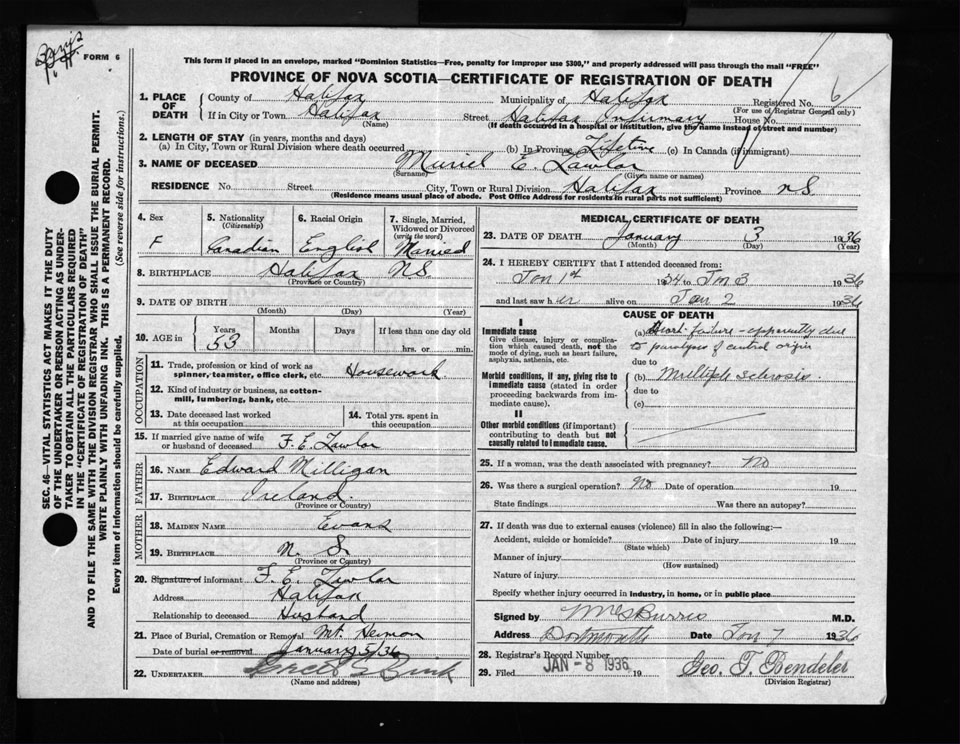 FORM 6
This form if placed in an envelope, marked "Dominion Statistics—Free, penalty for improper use $300," and properly addressed will pass through the mail "FREE"
PROVINCE OF NOVA SCOTIA—CERTIFICATE OF REGISTRATION OF DEATH
SEC. 46—VITAL STATISTICS ACT MAKES IT THE DUTY
OF THE UNDERTAKER OR PERSON ACTING AS UNDER-
TAKER TO OBTAIN ALL THE PARTICULARS REQUIRED
IN THE "CERTIFICATE OF REGISTRATION OF DEATH"
AND TO FILE THE SAME WITH THE DIVISION REGISTRAR WHO SHALL ISSUE THE BURIAL PERMIT.
WRITE PLAINLY WITH UNFADING INK. THIS IS A PERMANENT RECORD.
Every item of information should be carefully supplied. (See reverse side for instructions.)
1. PLACE OF DEATH
County of Halifax Municipality of Halifax Registered No. 6
(For use of Registrar General only)
If in City or Town Halifax Street Halifax Infirmary House No.
(Name) (If death occurred in a hospital or institution, give the name instead of street and number)
2. LENGTH OF STAY (in years, months and days)
(a) In City, Town or Rural Division where death occurred (b) In Province Lifetime (c) In Canada (if immigrant)
3. NAME OF DECEASED Muriel E. Lawlor
(Surname) (Given name or names)
RESIDENCE No. Street City, Town or Rural Division Halifax Province N.S.
(Residence means usual place of abode. Post Office Address for residents in rural parts not sufficient)
4. Sex F
5. Nationality (Citizenship) Canadian
6. Racial Origin English
7. Single, Married, Widowed or Divorced (write the word) Married
8. BIRTHPLACE Halifax N.S.
(Province or Country)
9. DATE OF BIRTH
(Month) (Day) (Year)
10. AGE in Years 53 Months Days If less than one day old
hrs. or min.
OCCUPATION
11. Trade, profession or kind of work as spinner, teamster, office clerk, etc. Housework
12. Kind of industry or business, as cotton-mill, lumbering, bank, etc.
13. Date deceased last worked at this occupation
14. Total yrs. spent in this occupation
15. If married give name of wife or husband of deceased F. E. Lawlor
FATHER
16. NAME Edward Milligan
17. BIRTHPLACE Ireland.
(Province or Country)
MOTHER
18. MAIDEN NAME Evans
19. BIRTHPLACE N. S.
(Province or Country)
20. Signature of informant F. E. Lawlor
Address Halifax
Relationship to deceased Husband
21. Place of Burial, Cremation or Removal Mt. Hermon
Date of burial or removal January 5/36
22. UNDERTAKER
(Name and address)
MEDICAL CERTIFICATE OF DEATH
23. DATE OF DEATH January 3 1936
(Month) (Day) (Year)
24. I HEREBY CERTIFY that I attended deceased from:
Jan 1st 1934 to Jan 3 1936
and last saw her alive on Jan 2 1936
CAUSE OF DEATH
I
Immediate cause
Give disease, injury or complication which caused death, not the mode of dying, such as heart failure, asphyxia, asthenia, etc.
(a) Heart failure - apparently due
to paralysis of central origin
due to
Morbid conditions, if any, giving rise to immediate cause (stated in order proceeding backwards from immediate cause).
(b) Multiple Sclerosis
due to
(c)
II
Other morbid conditions (if important) contributing to death but not causally related to immediate cause.
25. If a woman, was the death associated with pregnancy? No
26. Was there a surgical operation? No Date of operation 19
State findings Was there an autopsy?
27. If death was due to external causes (violence) fill in also the following:—
Accident, suicide or homicide? Date of injury 19
(State which)
Manner of injury
(How sustained)
Nature of injury
Specify whether injury occurred in industry, in home, or in public place
Signed by Burris M.D.
Address Dartmouth Date Jan 7 1936
28. Registrar's Record Number
29. Filed JAN - 8 1936 19 Geo. T. Bendeler
(Division Registrar)